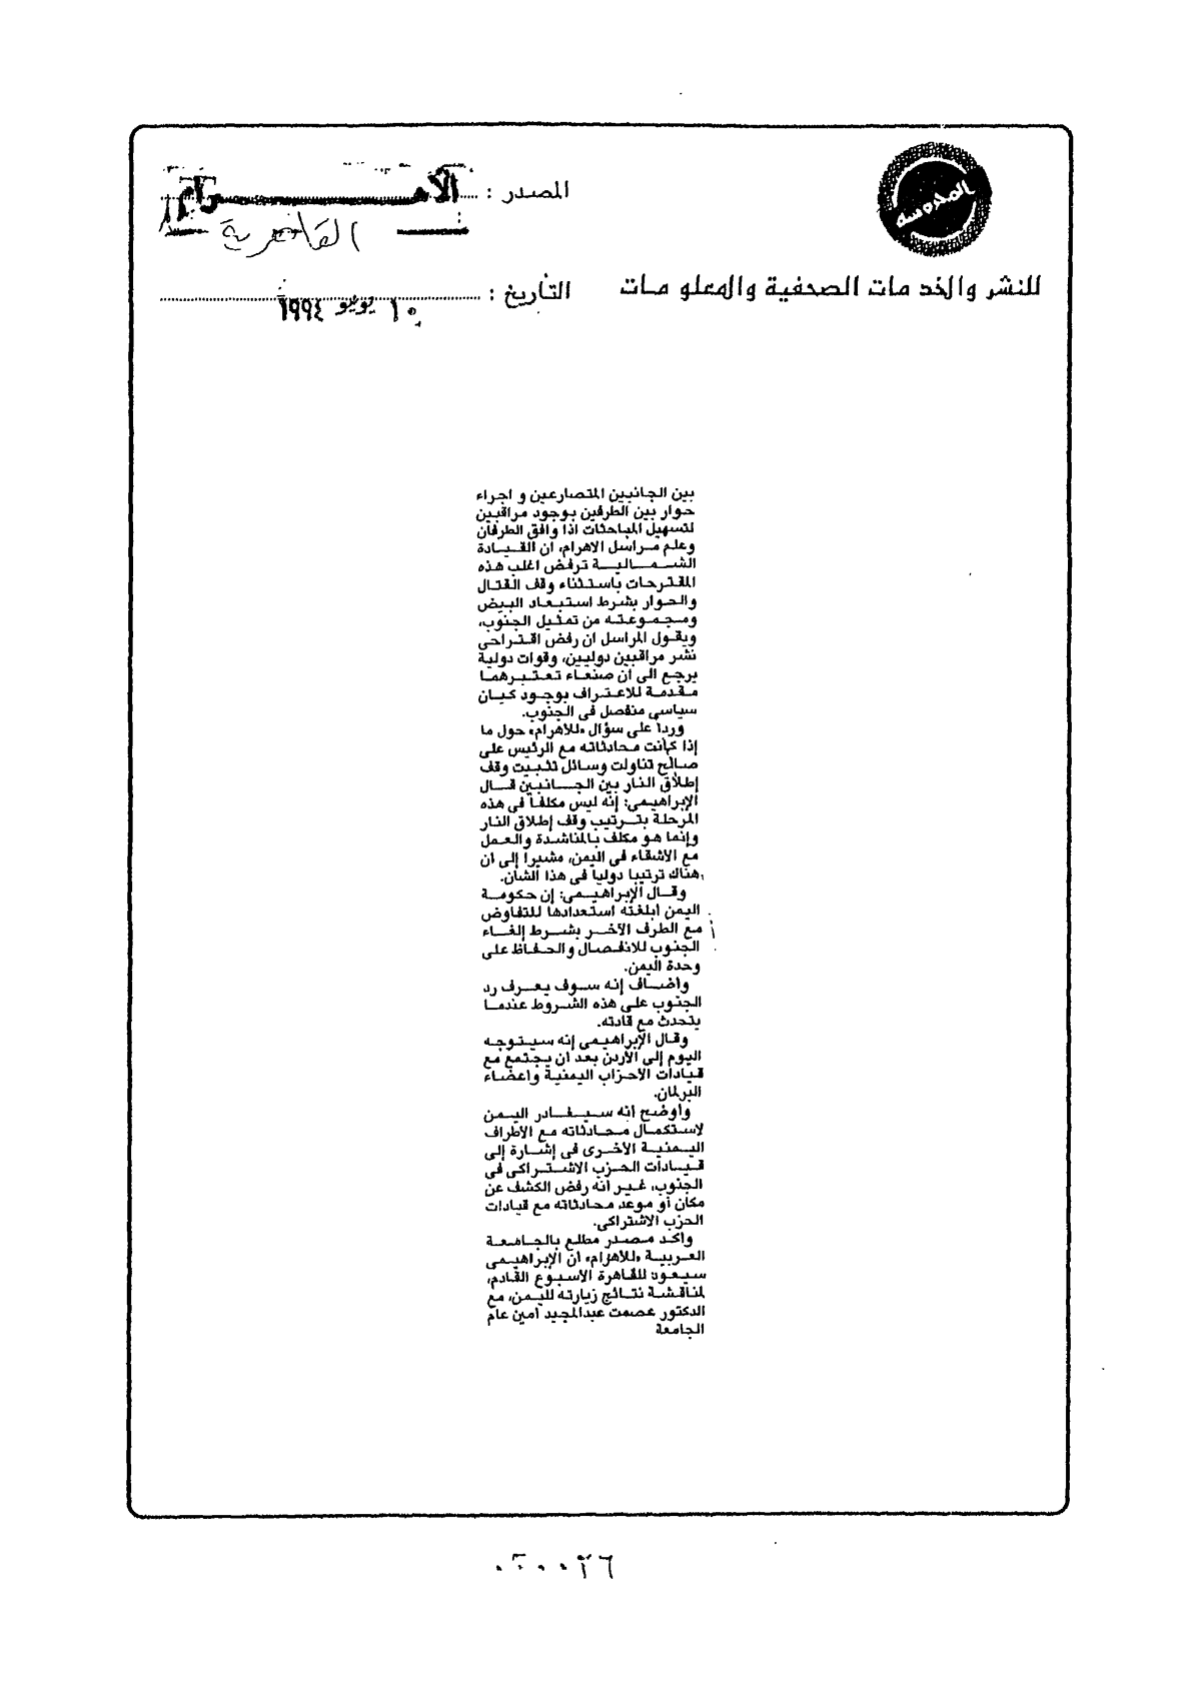 المدوسة
المصدر : الأهرام
القاهرية
للنشر والخدمات الصحفية والمعلومات
التأريخ : ١٠ يونيو ١٩٩٤
بين الجانبين المتصارعين و اجراء
حوار بين الطرفين بوجود مراقبين
لتسهيل المباحثات اذا وافق الطرفان
وعلم مراسل الاهرام، ان القيادة
الشمالية ترفض اغلب هذه
المقترحات باستثناء وقف القتال
والحوار بشرط استبعاد البيض
ومجموعته من تمثيل الجنوب،
ويقول المراسل ان رفض اقتراحى
نشر مراقبين دوليين، وقوات دولية
يرجع الى ان صنعاء تعتبرهما
مقدمة للاعتراف بوجود كيان
سياسى منفصل فى الجنوب.
ورداً على سؤال «للأهرام» حول ما
إذا كانت محادثاته مع الرئيس على
صالح تناولت وسائل تثبيت وقف
إطلاق النار بين الجانبين قال
الإبراهيمى: إنه ليس مكلفاً فى هذه
المرحلة بترتيب وقف إطلاق النار
وإنما هو مكلف بالمناشدة والعمل
مع الأشقاء فى اليمن، مشيرا إلى أن
هناك ترتيبا دولياً فى هذا الشأن.
وقال الإبراهيمى: إن حكومة
اليمن أبلغته استعدادها للتفاوض
مع الطرف الآخر بشرط إلغاء
الجنوب للانفصال والحفاظ على
وحدة اليمن.
وأضاف إنه سوف يعرف رد
الجنوب على هذه الشروط عندما
يتحدث مع قادته.
وقال الإبراهيمى إنه سيتوجه
اليوم إلى الأردن بعد أن يجتمع مع
قيادات الأحزاب اليمنية وأعضاء
البرلمان.
وأوضح أنه سيغادر اليمن
لاستكمال محادثاته مع الأطراف
اليمنية الأخرى فى إشارة إلى
قيادات الحزب الاشتراكى فى
الجنوب، غير أنه رفض الكشف عن
مكان أو موعد محادثاته مع قيادات
الحزب الاشتراكى.
وأكد مصدر مطلع بالجامعة
العربية «للأهرام» أن الإبراهيمى
سيعود للقاهرة الأسبوع القادم،
لمناقشة نتائج زيارته لليمن، مع
الدكتور عصمت عبدالمجيد أمين عام
الجامعة